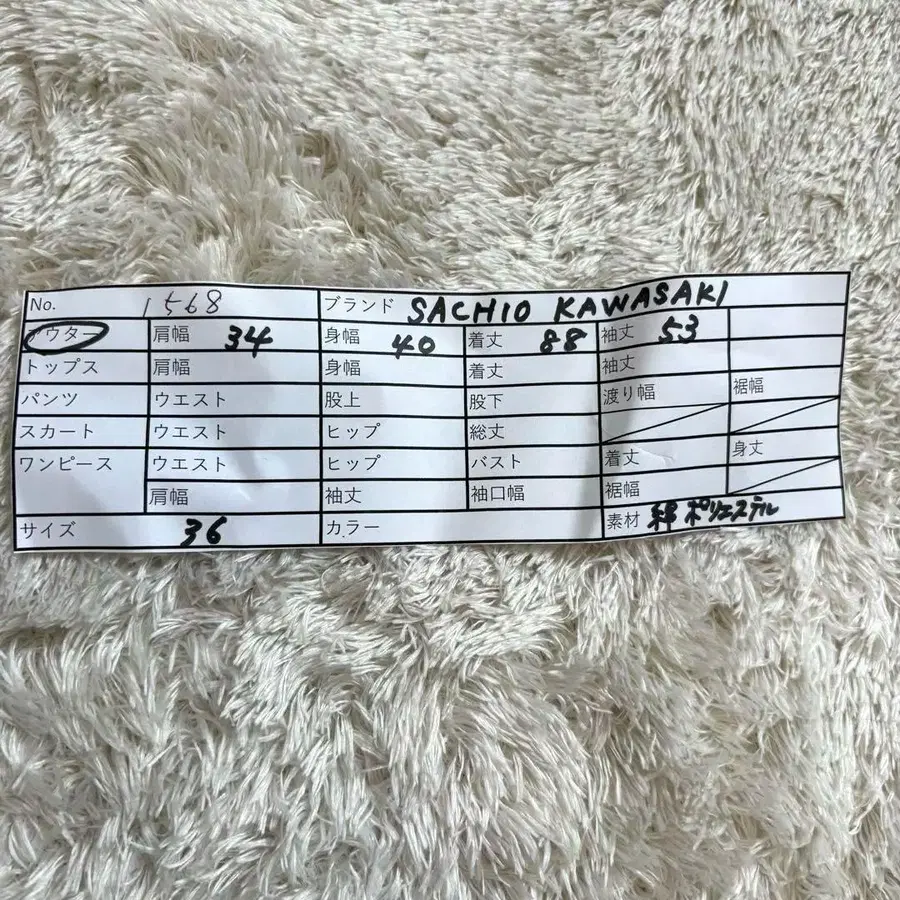 No. 1568 ブランド SACHIO KAWASAKI
アウター 肩幅 34 身幅 40 着丈 88 袖丈 53
トップス 肩幅 身幅 着丈 袖丈
パンツ ウエスト 股上 股下 渡り幅 裾幅
スカート ウエスト ヒップ 総丈
ワンピース ウエスト ヒップ バスト 着丈 身丈
肩幅 袖丈 袖口幅 裾幅
サイズ 36 カラー 素材 綿 ポリエステル